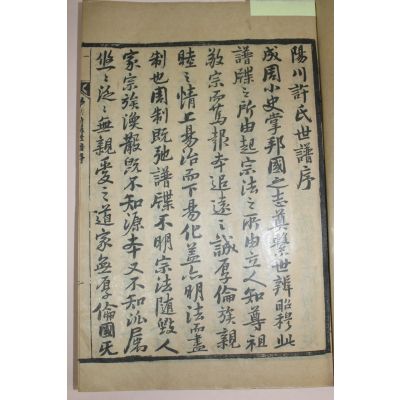 陽川許氏世譜序
成周小史掌邦國之志奠繫世辨昭穆此
譜牒之所由起宗法之所由立人知尊祖
敬宗而篤報本追遠之誠厚倫族親
睦之情上易治而下易化盖亦明法而盡
制也周制旣弛譜牒不明宗法隨毀人
家宗族渙散旣不知源本又不知派屬
悠〻泛〻無親愛之道家無厚倫國无